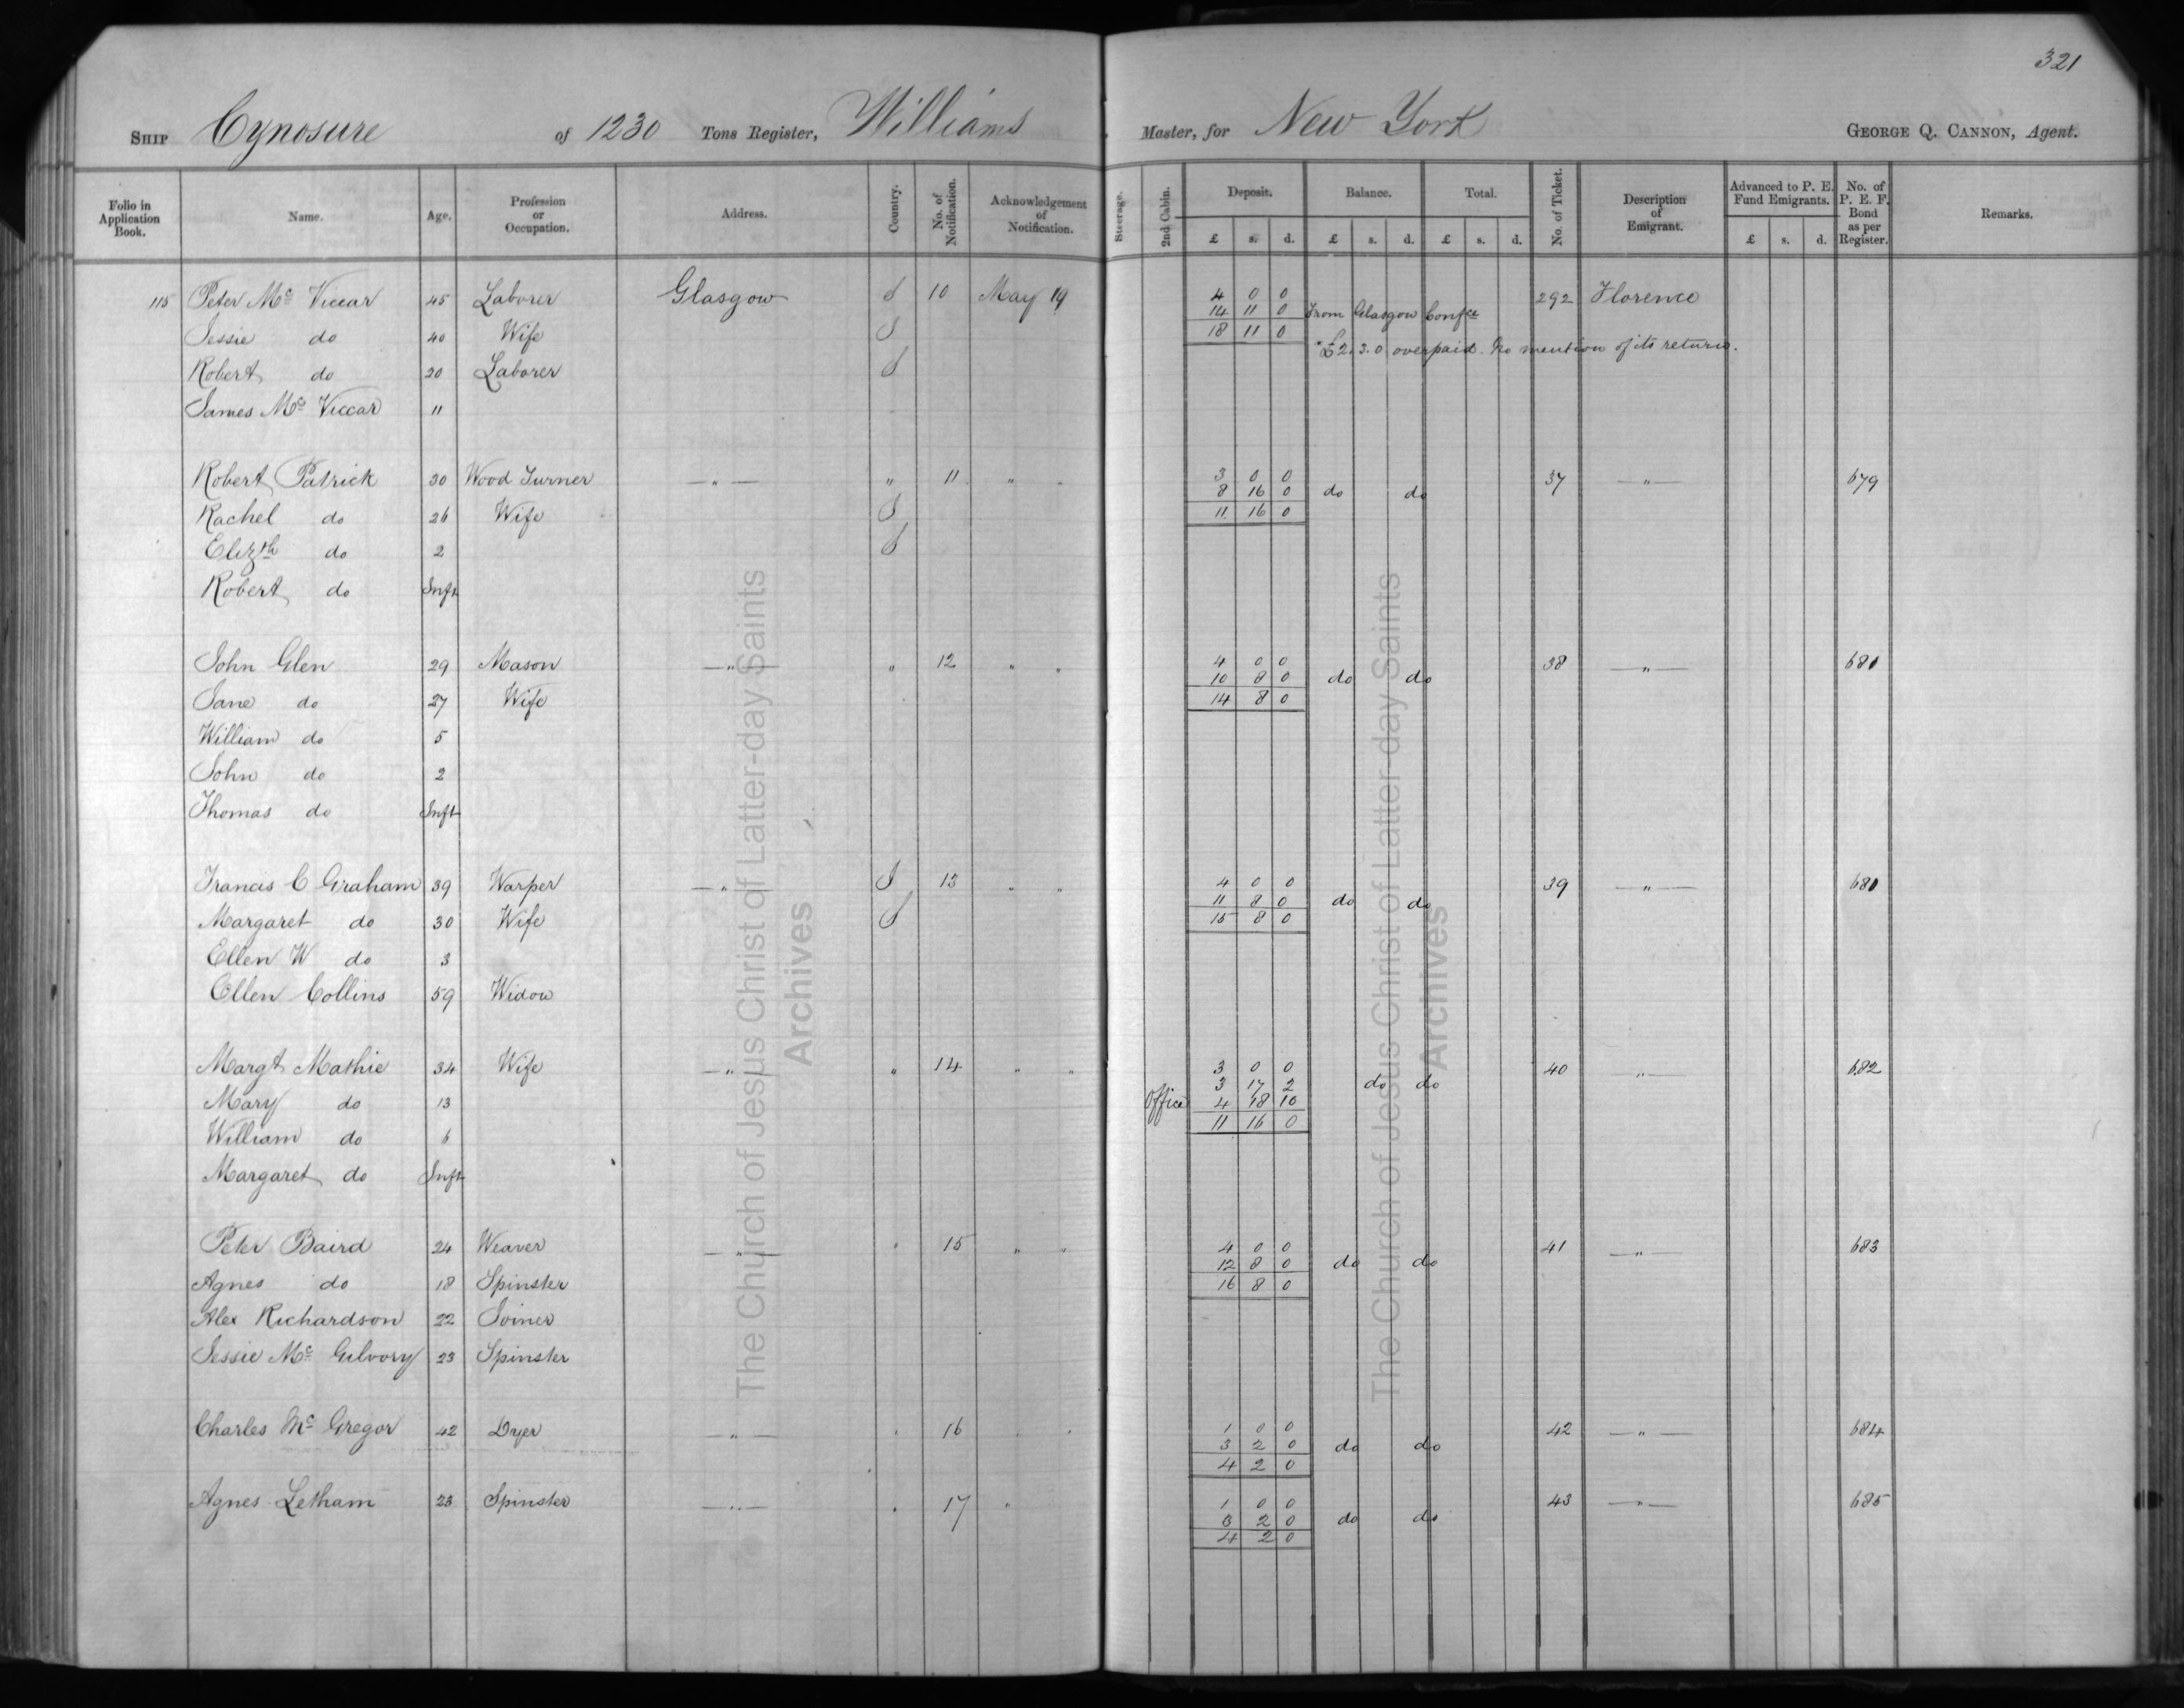 321
SHIP Cynosure of 1230 Tons Register, Williams Master, for New York GEORGE Q. CANNON, Agent.
Folio in Application Book. Name. Age. Profession or Occupation. Address. Country. No. of Notification. Acknowledgement of Notification. Steerage. 2nd Cabin. Deposit. Balance. Total. No. of Ticket. Description of Emigrant. Advanced to P. E. Fund Emigrants. No. of P. E. F. Bond as per Register. Remarks.
£ s. d. £ s. d. £ s. d. £ s. d.
115 Peter Mc Viccar 45 Laborer Glasgow S 10 May 19 4 0 0 292 Florence
14 11 0 From Glasgow Confce
Jessie do 40 Wife S 18 11 0
*£2.3.0 overpaid. No mention of its return.
Robert do 20 Laborer S
James Mc Viccar 11
Robert Patrick 30 Wood Turner —"— " 11 " 3 0 0 37 —"— 679
8 16 0 do do
Rachel do 26 Wife S 11 16 0
Elizth do 2 S
Robert do Inft
John Glen 29 Mason —"— " 12 " " 4 0 0 38 —"— 680
10 8 0 do do
Jane do 27 Wife 14 8 0
William do 5
John do 2
Thomas do Inft
Francis C Graham 39 Warper —"— S 13 " " 4 0 0 39 —"— 681
11 8 0 do do
Margaret do 30 Wife S 15 8 0
Ellen W do 3
Ellen Collins 59 Widow
Margt Mathie 34 Wife —"— " 14 " " 3 0 0 40 —"— 682
3 17 2 do do
Mary do 13 Office 4 18 10
William do 6 11 16 0
Margaret do Inft
Peter Baird 24 Weaver —"— " 15 " " 4 0 0 41 —"— 683
12 8 0 do do
Agnes do 18 Spinster 16 8 0
Alex Richardson 22 Joiner
Jessie Mc Gilvory 23 Spinster
Charles Mc Gregor 42 Dyer —"— " 16 " " 1 0 0 42 —"— 684
3 2 0 do do
4 2 0
Agnes Letham 23 Spinster —"— " 17 " 1 0 0 43 —"— 685
3 2 0 do do
4 2 0
The Church of Jesus Christ of Latter-day Saints
Archives
The Church of Jesus Christ of Latter-day Saints
Archives